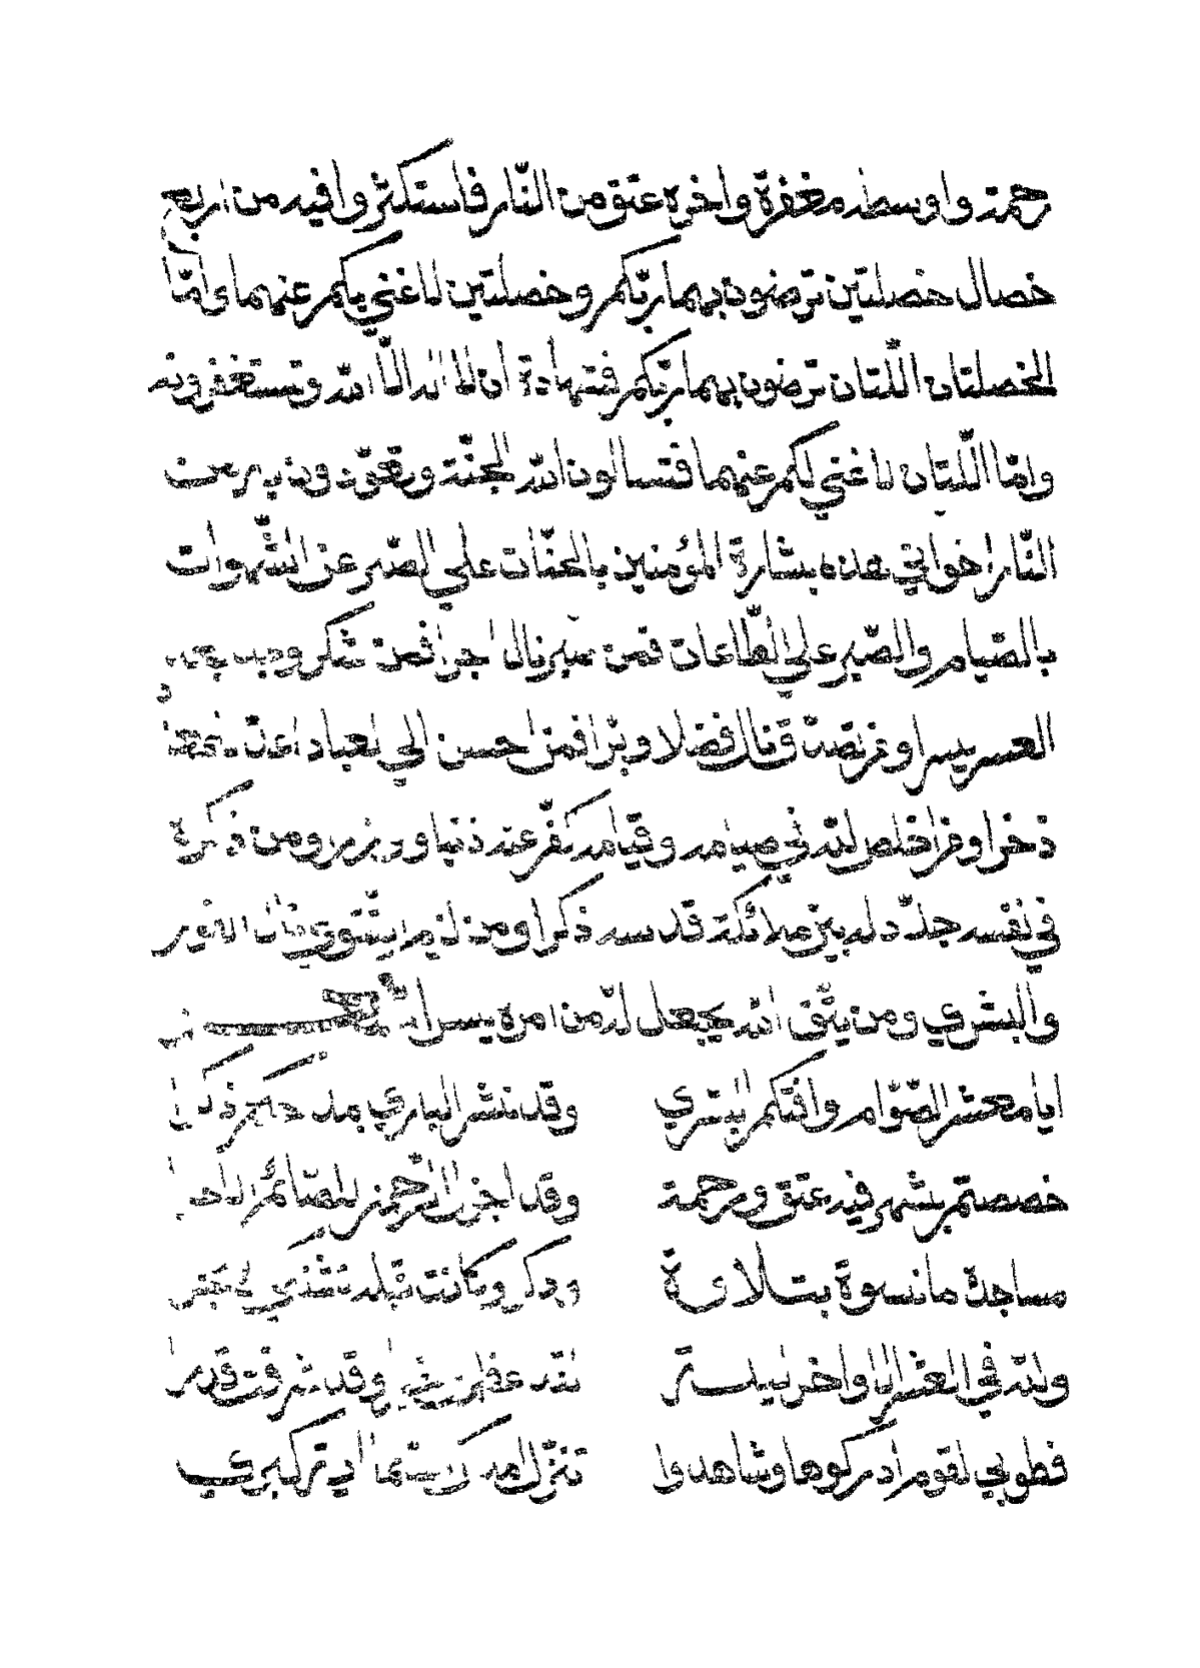 رحمة واوسطه مغفرة واخره عتق من النّار فاستكثروا فيه من اربع
خصال خصلتين ترضون بهما ربّكم وخصلتين لا غني بكم عنهما اى امّا
الخصلتان اللّتان ترضون بهما ربّكم فشهادة ان لا اله الّا الله وتستغفرونه
وامّا اللّتان لا غني لكم عنهما فتسالون الله الجنّة وتعوّذون به من
النّار اخواني هذه بشارة المؤمنين بالجنّات علي الصّبر عن الشّهوات
بالصّيام والصّبر علي الطّاعات فمن صبر نال اجرا فمن شكر وجب
العسر يسرا ومن تصدّق نال فضلا وبرّا فمن احسن الي العباد
ذخرا ومن اخلص لله في صيامه وقيامه كفر عنه ذنبا ووزرا ومن ذكره
في نفسه بين ملائكة قدسه ذكرا ومن لزم التقوي
والبشري ومن يتّق الله يجعل له من امره يسرا
ايا معشر الصّوّام وافتكم البشري وقد نشر الباري
خصصتم بشهر فيه عتق ورحمة وقد اجزل الرّحمن للصّائم الاجرا
مساجده مانسوة بتلاوة وكانت قبله تشتكي
ولله في العشر الاواخر ليلة لقد عظمت وقد شرفت قدرا
فطوبي لقوم ادركوها وشاهدوا تنزّل املاك السّما اية كبري